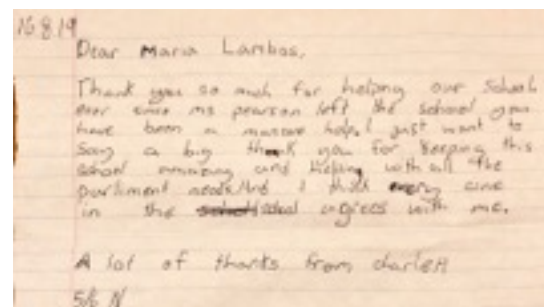 16.8.19
Dear Maria Lambos,
Thank you so much for helping our School
ever since ms pearson left the school you
have been a massive help. I just want to
Say a big thank you for keeping this
school running and helping with all the
parliment I think every one
in the school agrees with me.
A lot of thanks from charlett
5/6 N